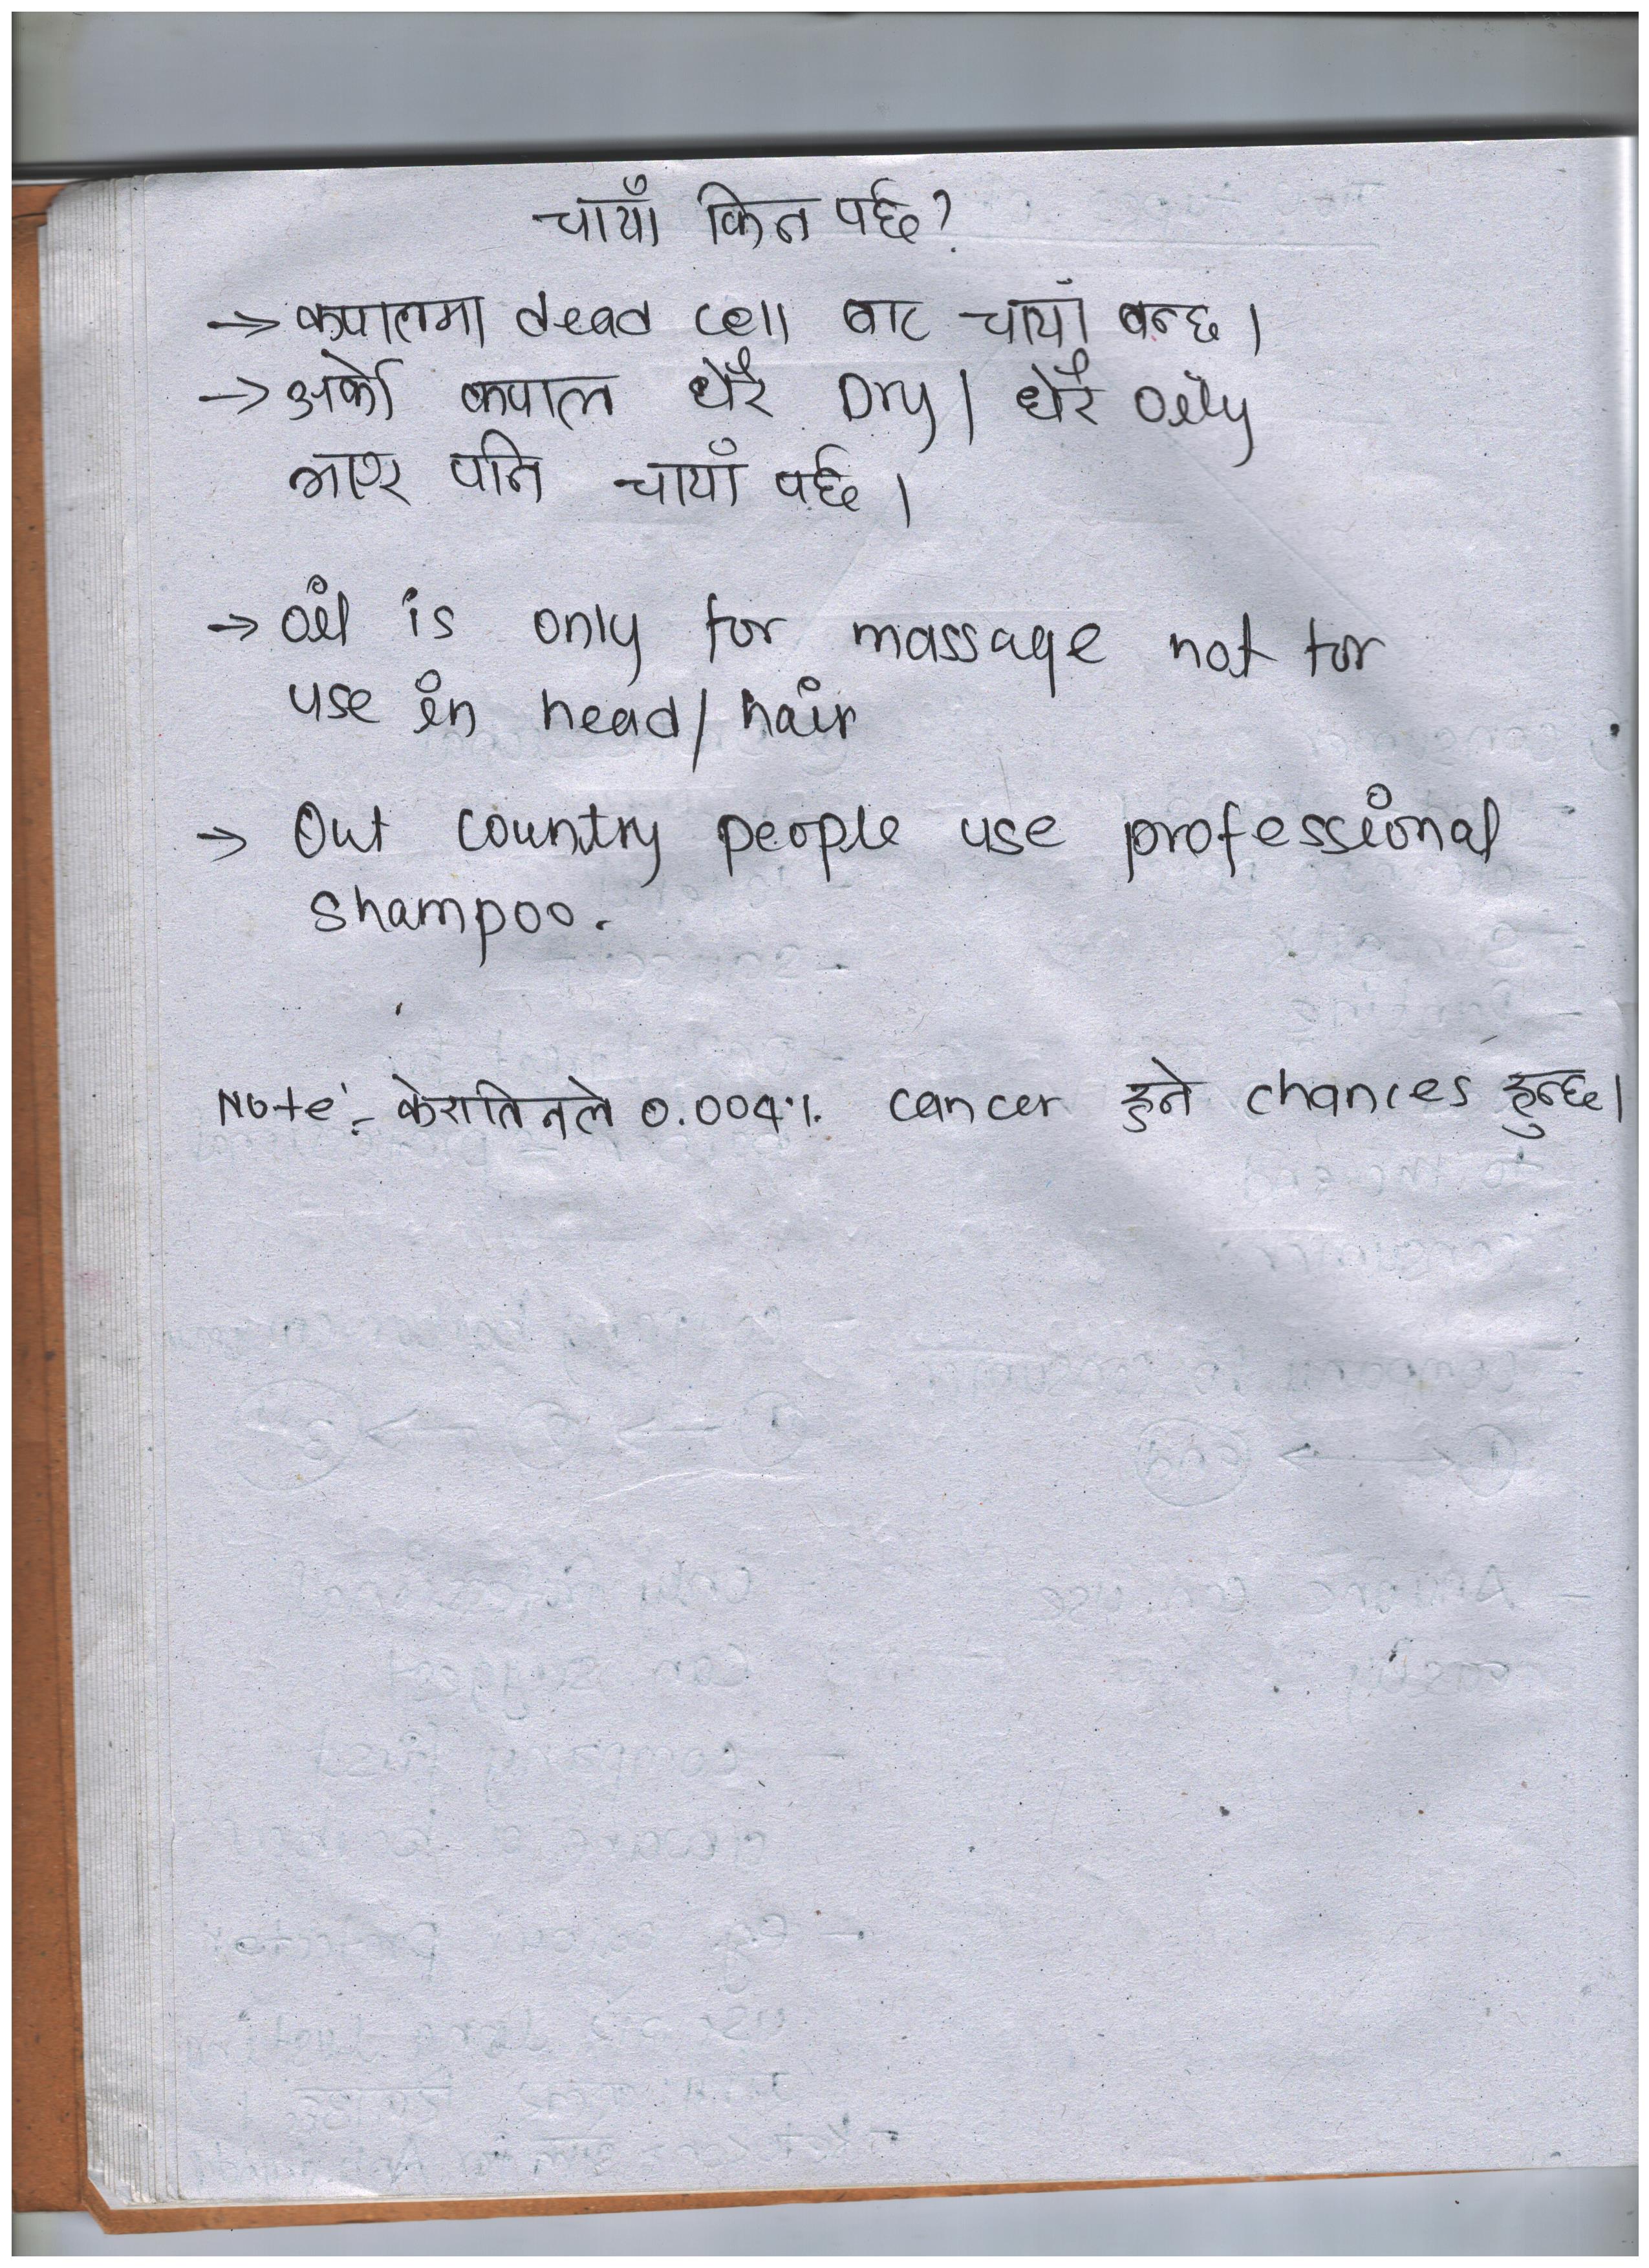 चायाँ किन पर्छ?
→ कपालमा dead cell बाट चायाँ बन्छ।
→ अर्को कपाल धेरै Dry / धेरै oily
भएर पनि चायाँ पर्छ।
→ oil is only for massage not for
use in head / hair
→ Out country people use professional
shampoo.
Note:- केरातिनले 0.004% cancer हुने chances हुन्छ।